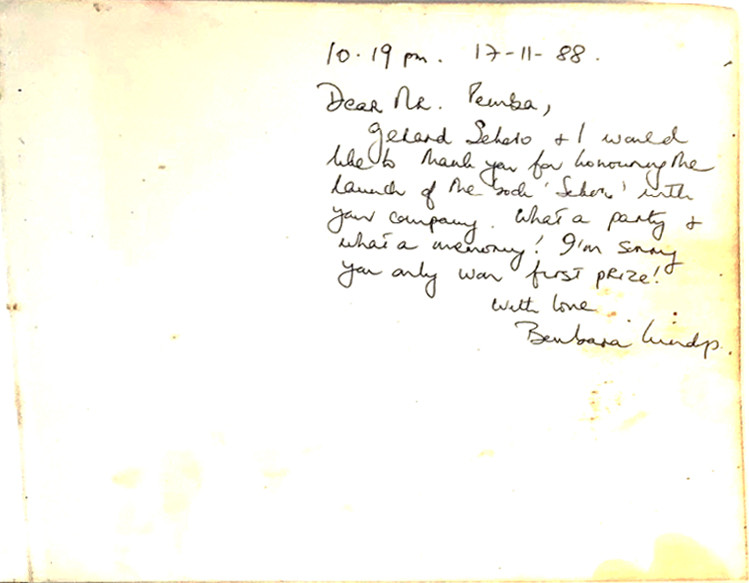 10.19 pm. 17-11-88.
Dear Mr. Pemba,
Gerard Sekoto & I would
like to thank you for honouring the
launch of the book 'Sekoto' with
your company. What a party &
what a memory! I'm sorry
you only won first prize!
With love
Barbara Lindop.